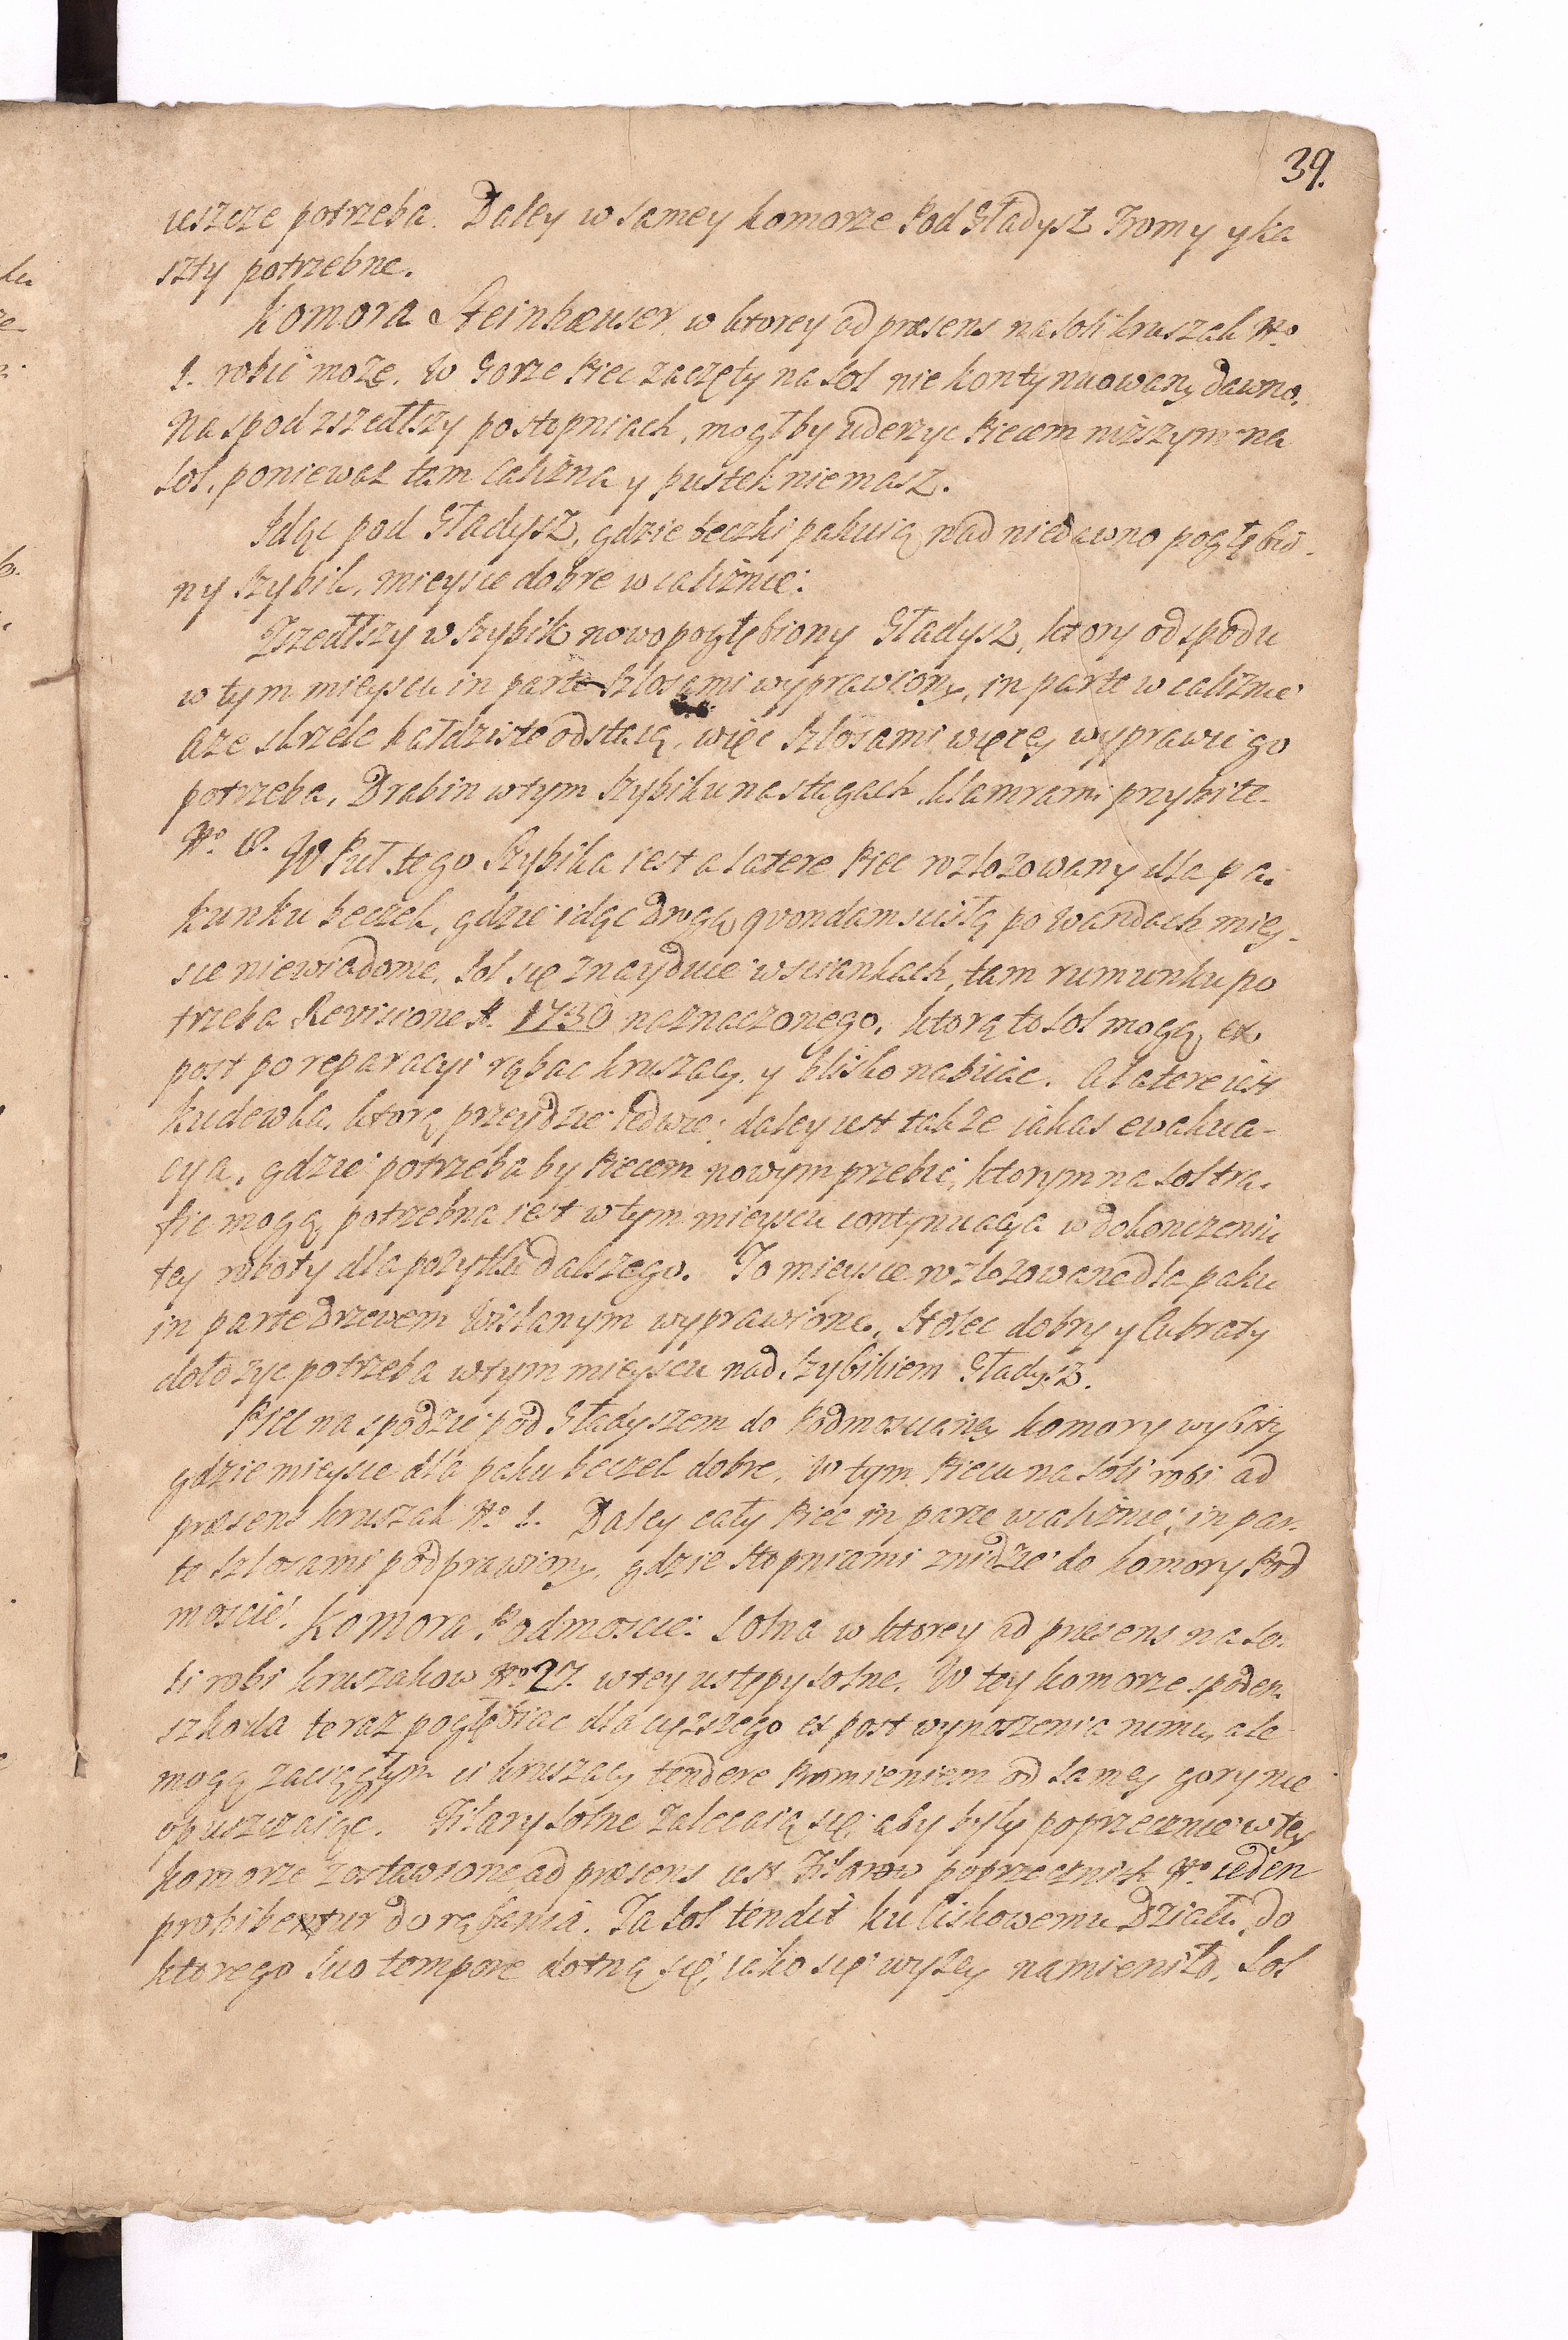 39.
ieszcze potrzeba. Daley w samey komorze Pod Gładysz Tromy y ka
szty potrzebne.
Komora Steinhæuser w ktorey ad præsens na soli kruszak No
1. robić może. W Gorze Piec zaczęty na sol nie kontynuowany dawno.
Na spod zszedłszy po stopniach, mogłby uderzyc Piecem niższym na
sol, poniewaz tam calizna y pustek niemasz.
Idąc pod Gładysz, gdzie beczki pakuią nad niedawno pogłębio-
ny szybik, mieysce dobre w caliznie.
Zszedłszy w szybik nowo pogłębiony Gładysz, ktory od spodu
w tym mieyscu in parte szlosami wyprawiony, in parte w caliznie
aze skrzele kałdziste odstaią, więc szlosami więcey wyprawic go
potrzeba. Drabin w tym szybiku na stagach klamrami przybite
No 8. W Puł tego szybika iest a latere Piec rozłozowany dla pa-
kunku beczek, gdzie idąc drogą quondam scisłą po wandach miey-
sce niewiadome, sol się znayduie w sciankach, tam rumunku po
trzeba Revizione A. 1730 naznaczonego, ktorą to sol mogą ex
post po reparacyi rąbac kruszacy y blisko nabiiac. A latere iest
kudewka, ktorą przeydzie ledwie; daley iest także iakas ewakua-
cya, gdzie potrzeba by Piecem nowym przebić, ktorym na sol tra-
fic mogą, potrzebna iest w tym mieyscu continuacya w dokonczeniu
tey roboty dla pozytku dalszego. To mieysce rozłozowane dla paku
in parte drzewem wislanym wyprawione, stolec dobry y lubraty
dołozyc potrzeba w tym mieyscu nad szybikiem Gładysz.
Piec na spodzie pod Gładyszem do Podmoscianey komory wybity
gdzie mieysce dla paku beczek dobre. W tym Piecu na soli robi ad
præsens kruszak No 1. Daley cały Piec in parte w caliznie, in par-
te szlosami podprawiony, gdzie stopniami znidzie do komory Pod
moscie. Komora Podmoscie solna w ktorey ad præsens na so-
li robi kruszakow No 27. w tey ustępy solne. W tey komorze spodem
szkoda teraz pogłębiac dla cięzszego ex post wynoszenia rumu, ale
mogą zaciągłym ci kruszacy tendere Promieniem od samey gory nie
opuszczaiąc. Filary solne zalecaią się, aby były poprzecznie w tey
komorze zostawione ad præsens iest Filarow poprzecznich No ieden
prohibentur do rąbania. Ta sol tendit ku liskowemu Działu, do
ktorego suo tempore dotną się, iako się wyzey namieniło. Sol